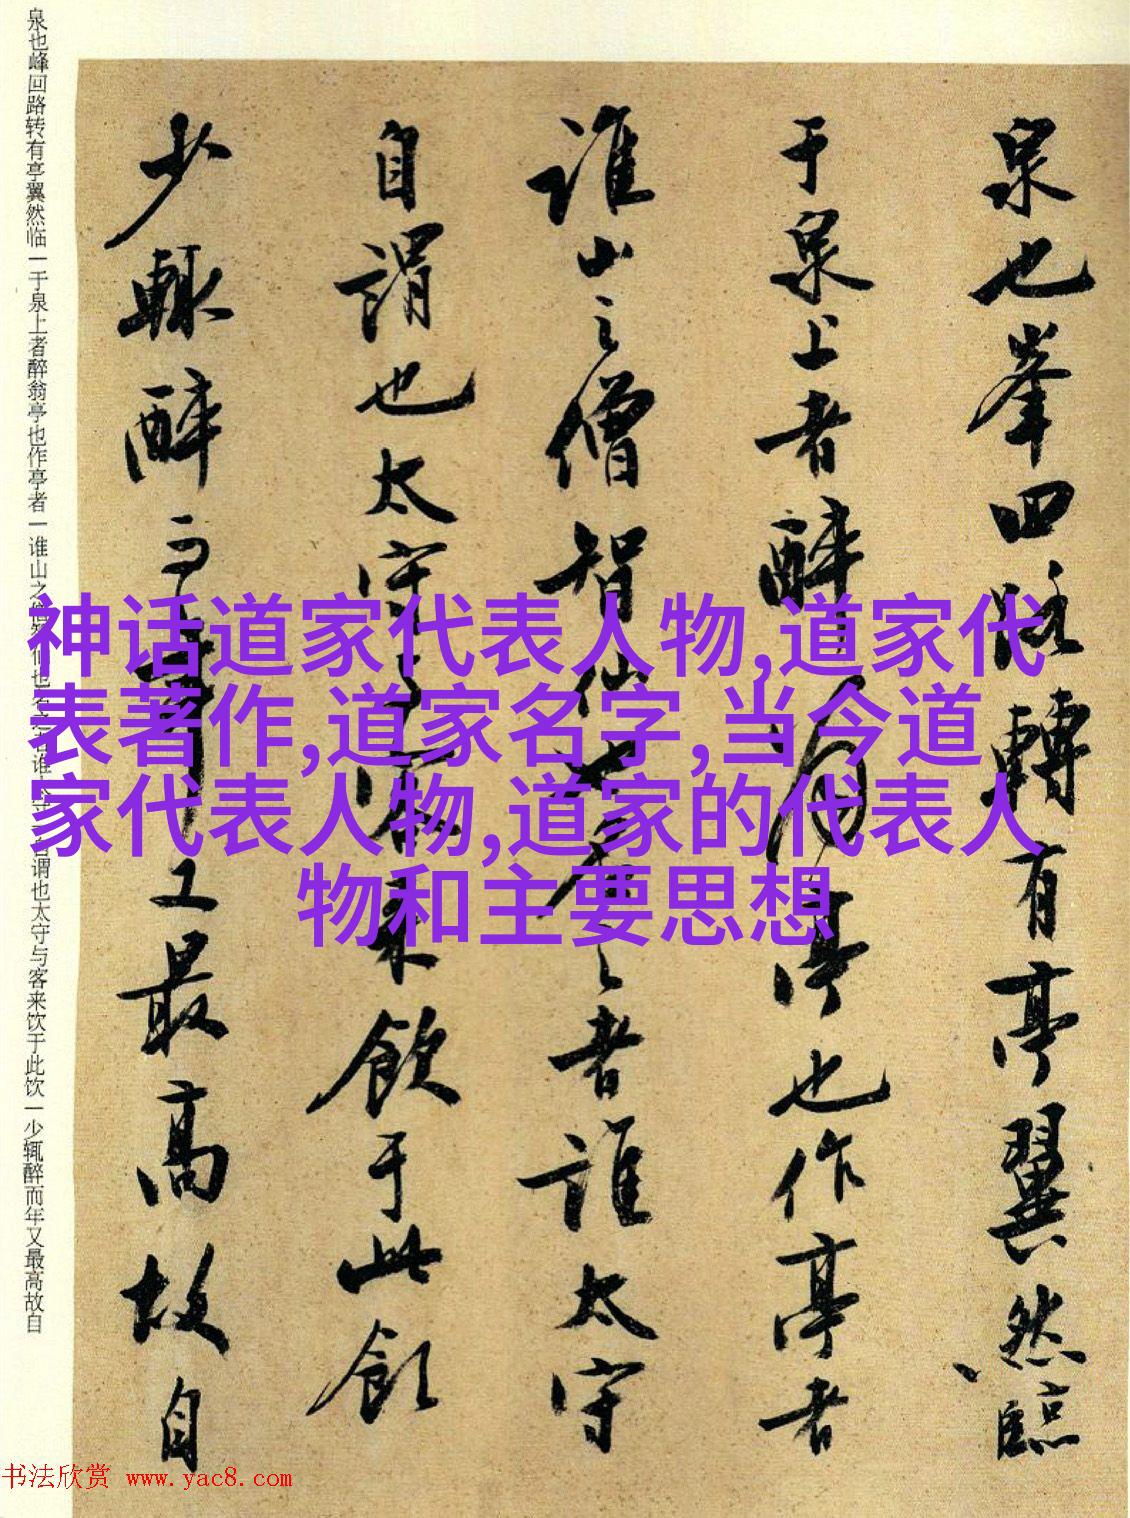 泉也峯回路轉有亭翼然臨
于泉上者醉翁亭也作亭者
誰山之僧智仙也名之者誰太守
自謂也太守與客來飲于此飲
少輒醉而年又最高故自
泉也峰回路转有亭翼然临一于泉上者醉翁亭也作亭者一谁山之僧智仙也名之者谁太守一自谓也太守与客来饮于此饮一少辄醉而年又最高故自
神话道家代表人物,道家代
表著作,道家名字,当今道
家代表人物,道家的代表人
物和主要思想
书法欣赏 www.yac8.com